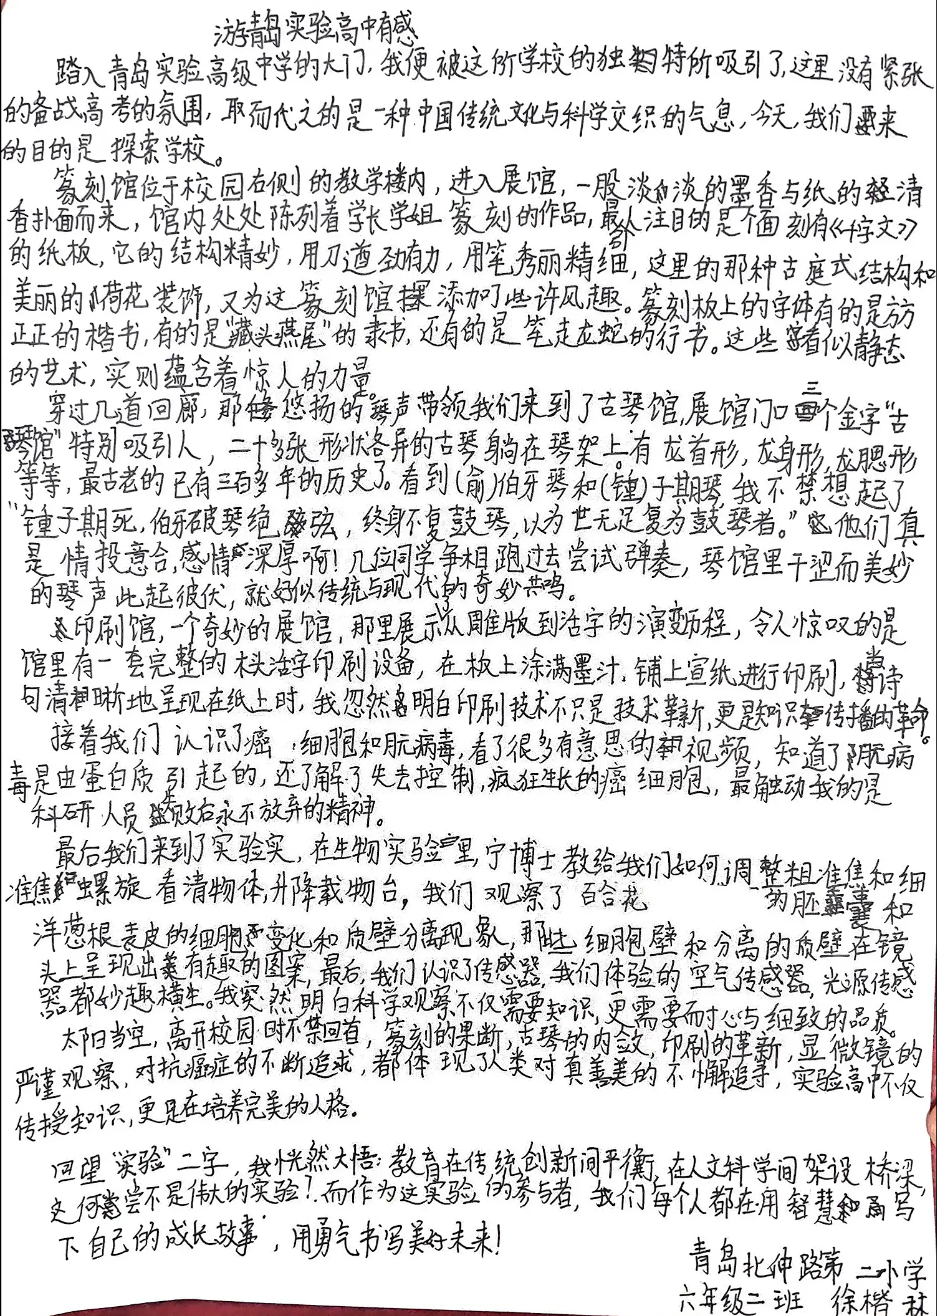 游青岛实验高中有感
踏入青岛实验高级中学的大门,我便被这所学校的独特所吸引了,这里没有紧张
的备战高考的氛围,取而代之的是一种中国传统文化与科学交织的气息,今天,我们来
的目的是探索学校。
篆刻馆位于校园右侧的教学楼内,进入展馆,一股淡淡的墨香与纸的轻清
香扑面而来,馆内处处陈列着学长学姐篆刻的作品,最引人注目的是个面刻有《千字文》
的纸板,它的结构精妙,用刀遒劲有力,用笔秀丽精细,这里的那种古庭式结构和
美丽的荷花装饰,又为这篆刻馆添加了些许风趣。篆刻板上的字体有的是方方
正正的楷书,有的是"藏头燕尾"的隶书,还有的是笔走龙蛇的行书。这些看似静态
的艺术,实则蕴含着惊人的力量。
穿过几道回廊,那悠扬的琴声带领我们来到了古琴馆,展馆门口三个金字"古
琴馆"特别吸引人,二十多张形状各异的古琴躺在琴架上。有龙首形,龙身形,龙腮形
等等,最古老的已有三百多年的历史了。看到(俞)伯牙琴和(锺)子期琴,我不禁想起了
"锺子期死,伯牙破琴绝弦,终身不复鼓琴,以为世无足复为鼓琴者。"他们真
是情投意合,感情深厚啊!几位同学争相跑过去尝试弹奏,琴馆里干涩而美妙
的琴声此起彼伏,就好似传统与现代的奇妙共鸣。
印刷馆,一个奇妙的展馆,那里展示从雕版到活字的演变历程,令人惊叹的是
馆里有一套完整的木头活字印刷设备,在板上涂满墨汁,铺上宣纸进行印刷,当诗
句清晰地呈现在纸上时,我忽然明白印刷技术不只是技术革新,更是知识传播的革命。
接着我们认识了癌细胞和朊病毒,看了很多有意思的视频,知道了朊病
毒是由蛋白质引起的,还了解了失去控制,疯狂生长的癌细胞,最触动我的是
科研人员失败后永不放弃的精神。
最后我们来到了实验实,在生物实验室里,宁博士教给我们如何调整粗准焦和细
准焦螺旋看清物体,升降载物台,我们观察了百合花的胚囊和
洋葱根表皮的细胞变化和质壁分离现象,那些细胞壁和分离的质壁在镜
头上呈现出有趣的图案,最后,我们认识了传感器,我们体验的空气传感器,光源传感
器都妙趣横生。我突然明白科学观察不仅需要知识,更需要耐心与细致的品质。
太阳当空,离开校园时不禁回首,篆刻的果断,古琴的内敛,印刷的革新,显微镜的
严谨观察,对抗癌症的不断追求,都体现了人类对真善美的不懈追寻,实验高中不仅
传授知识,更是在培养完美的人格。
回望"实验"二字,我恍然大悟:教育在传统创新间平衡,在人文科学间架设桥梁,
这何尝不是伟大的实验?而作为这实验的参与者,我们每个人都在用智慧写
下自己的成长故事,用勇气书写美好未来!
青岛北仲路第二小学
六年级二班 徐楷林